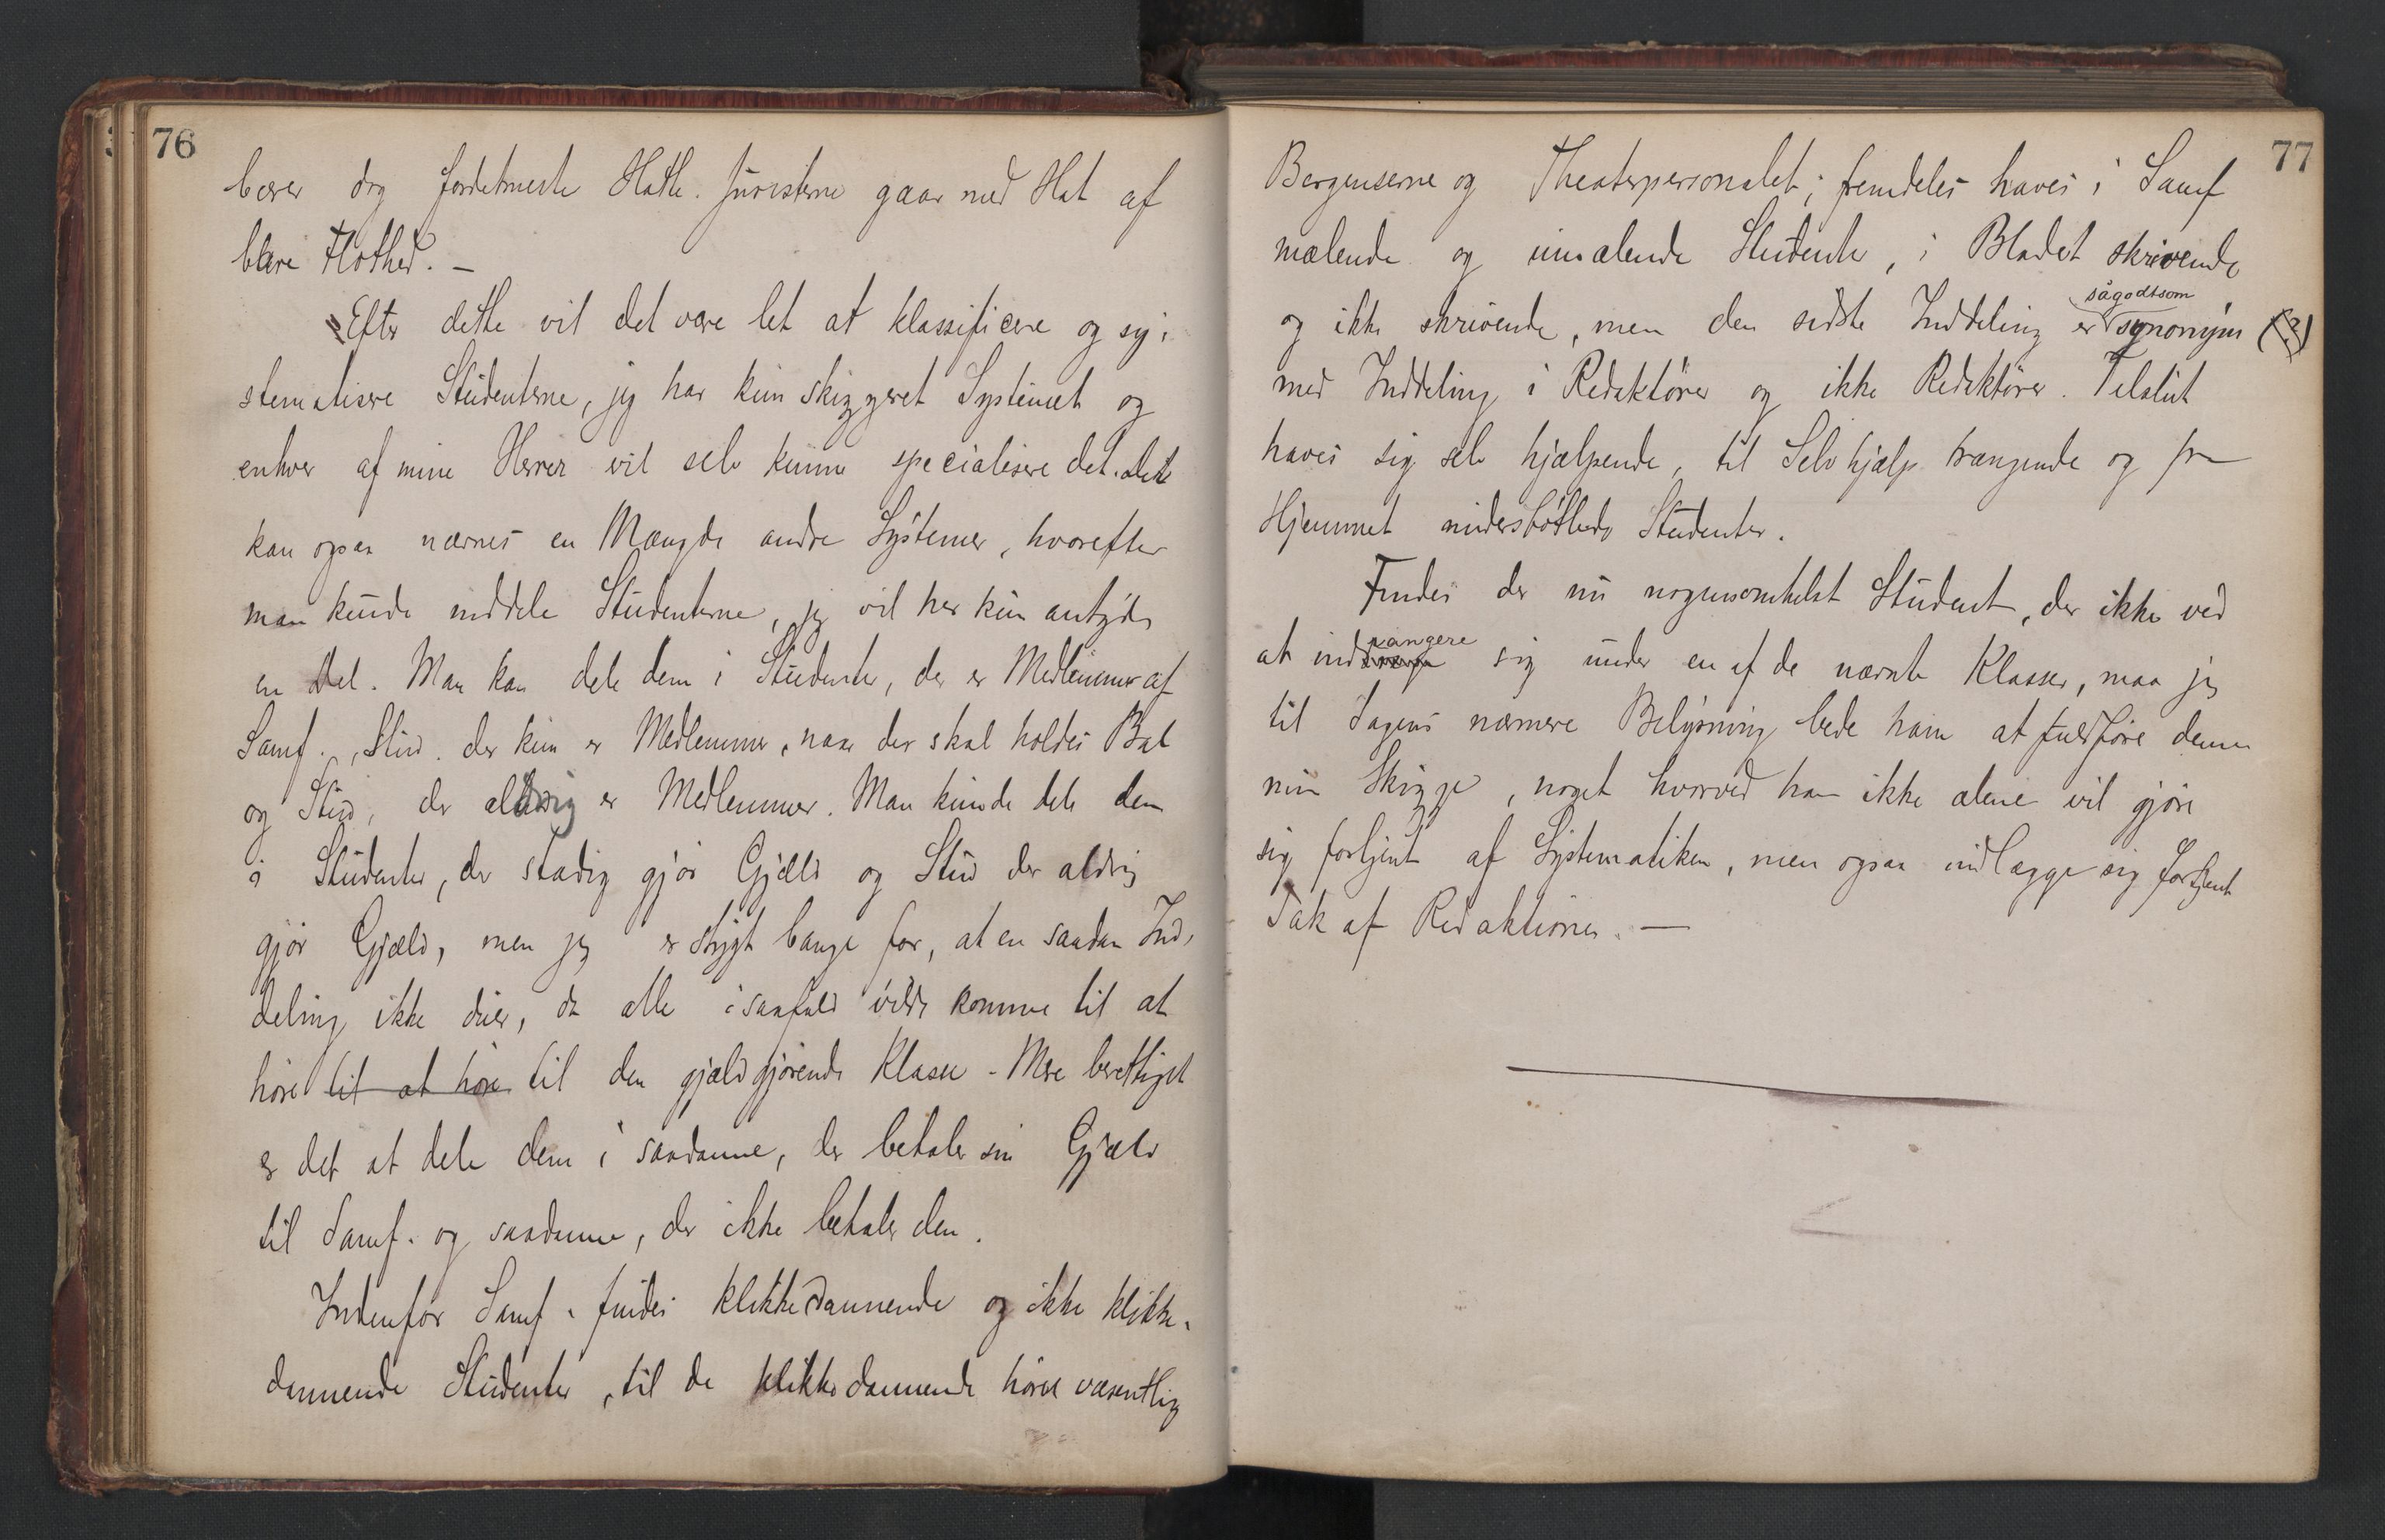 76
bærer dog fordetmeste Hatte. Juristerne gaar med Hat af
bare Flothed. –
Efter dette vil det være let at klassificere og sy-
stematisere Studenterne, jeg har kun skizzeret Systemet og
enhver af mine Herrer vil selv kunne specialisere det. Det
kan ogsaa nævnes en Mængde andre Systemer, hvorefter
man kunde inddele Studenterne, jeg vil her kun antyde
en Del. Man kan dele dem i Studenter, der er Medlemmer af
Samf., Stud. der kun er Medlemmer, naar der skal holdes Bal
og Stud, der aldrig er Medlemmer. Man kunde dele dem
i Studenter, der stadig gjør Gjæld og Stud der aldrig
gjør Gjæld, men jeg er stygt bange for, at en saadan Ind-
deling ikke duer, da alle isaafald vilde komme til at
høre til at høre til den gjældgjørende Klasse – Mere berettiget
er det at dele dem i saadanne, der betaler sin Gjæld
til Samf. og saadanne, der ikke betaler den.
Indenfor Samf. findes klikkedannende og ikke klikke-
dannende Studenter, til de klikkedannende hører væsentlig
77
Bergenserne og Theaterpersonalet; fremdeles haves i Samf
mælende og umælende Studenter, i Bladet skrivende
sågodtsom
og ikke skrivende, men den sidste Inddeling er synonym (?)
med Inddeling i Redaktører og ikke Redaktører. Tilslut
haves sig selv hjælpende, til Selvhjælp trængende og fra
Hjemmet understøttede Studenter.
Findes der nu nogensomhelst Student, der ikke ved
rangere
at ind sig under en af de nævnte Klasser, maa jeg
til Sagens nærmere Belysning bede ham at fuldføre denne
min Skizze, noget hvorved han ikke alene vil gjøre
sig fortjent af Systematiken, men ogsaa indlægge sig fortjent
Tak af Redaktionen. –